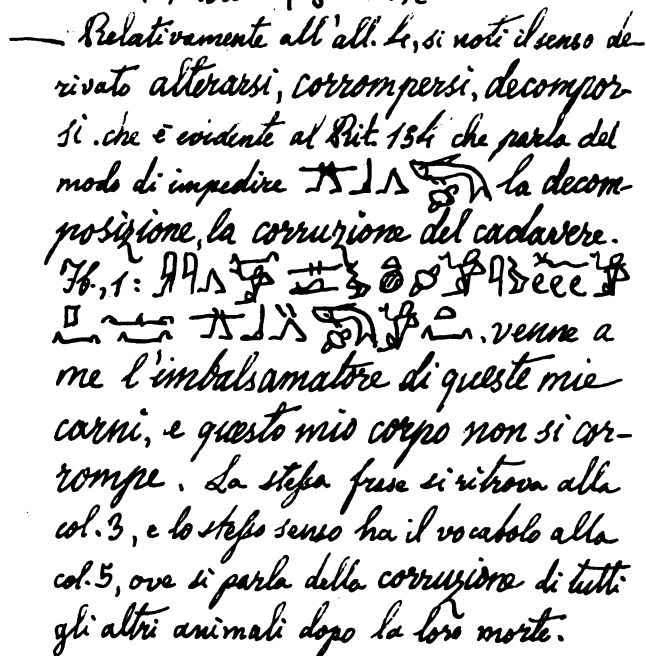 Relativamente all'all. 4, si noti il senso de-
rivato alterarsi, corrompersi, decompor-
si. che è evidente al Rit. 154 che parla del
modo di impedire la decom-
posizione, la corruzione del cadavere.
Ib., 1:
venne a
me l'imbalsamatore di queste mie
carni, e questo mio corpo non si cor-
rompe. La stessa frase si ritrova alla
col. 3, e lo stesso senso ha il vocabolo alla
col. 5, ove si parla della corruzione di tutti
gli altri animali dopo la loro morte.